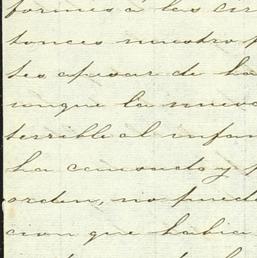 formis á las cir
tonces nuestro p
tes apesar de ha
unque la nueva
terrible al infan
ha cansado y p
orden, no puede
cion que habia